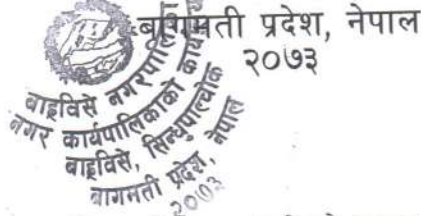 बागमती प्रदेश, नेपाल
२०७३
बाह्रविसे नगरपालिका
नगर कार्यपालिकाको कार्यालय
बाह्रविसे, सिन्धुपाल्चोक
बागमती प्रदेश, नेपाल
२०७३